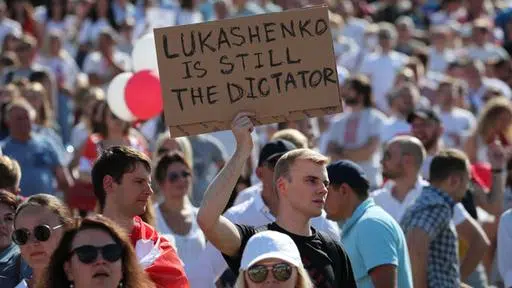 LUKASHENKO
IS STILL
THE DICTATOR